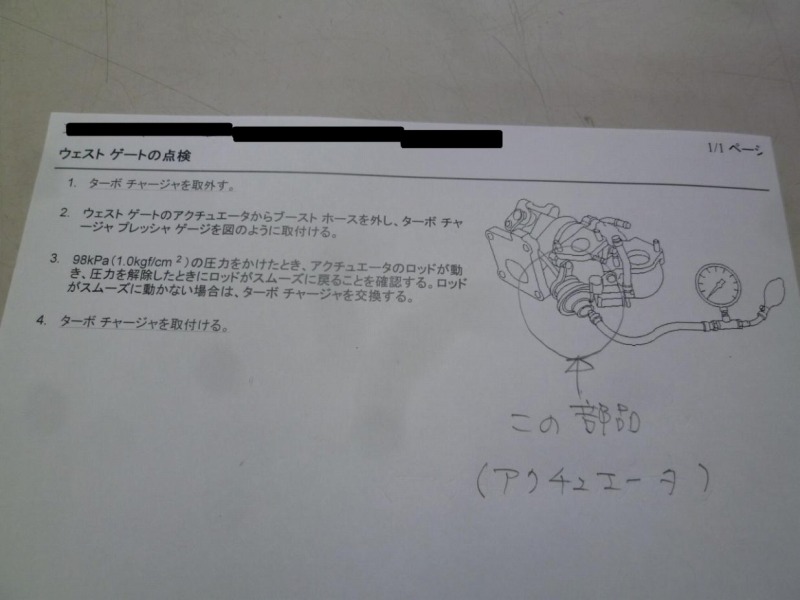 1/1 ページ
ウェスト ゲートの点検
1. ターボ チャージャを取外す。
2. ウェスト ゲートのアクチュエータからブースト ホースを外し、ターボ チャ
ージャ プレッシャ ゲージを図のように取付ける。
3. 98kPa(1.0kgf/cm²)の圧力をかけたとき、アクチュエータのロッドが動
き、圧力を解除したときにロッドがスムーズに戻ることを確認する。ロッド
がスムーズに動かない場合は、ターボ チャージャを交換する。
4. ターボ チャージャを取付ける。
この部品
(アクチュエータ)